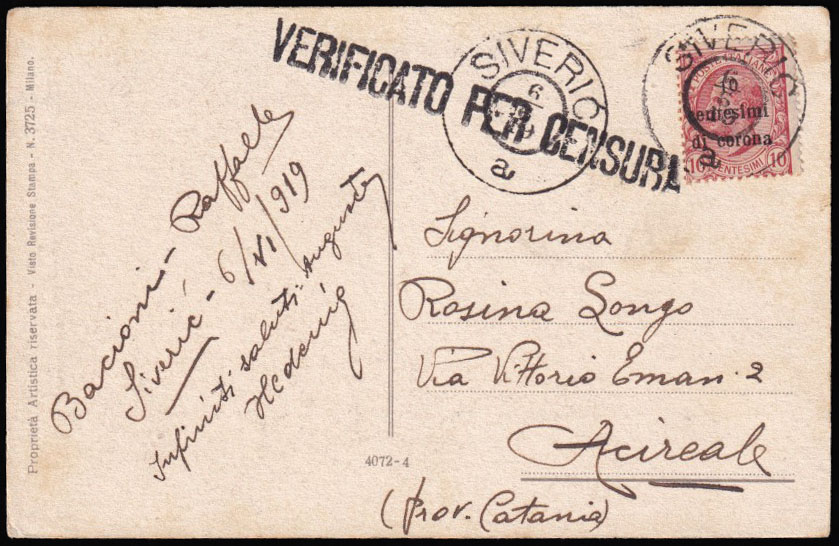 VERIFICATO PER CENSURA
SIVERIC
6
a
SIVERIC
6
a
POSTE ITALIANE
10
centesimi
di corona
10 CENTESIMI 10
Bacioni - Raffaele
Siveric - 6/VI/919
Infiniti saluti Auguste
Signorina
Rosina Longo
Via Vittorio Eman. 2
Acireale
(Prov. Catania)
4072-4
Proprietà Artistica riservata - Visto Revisione Stampa - N. 3725 - Milano.